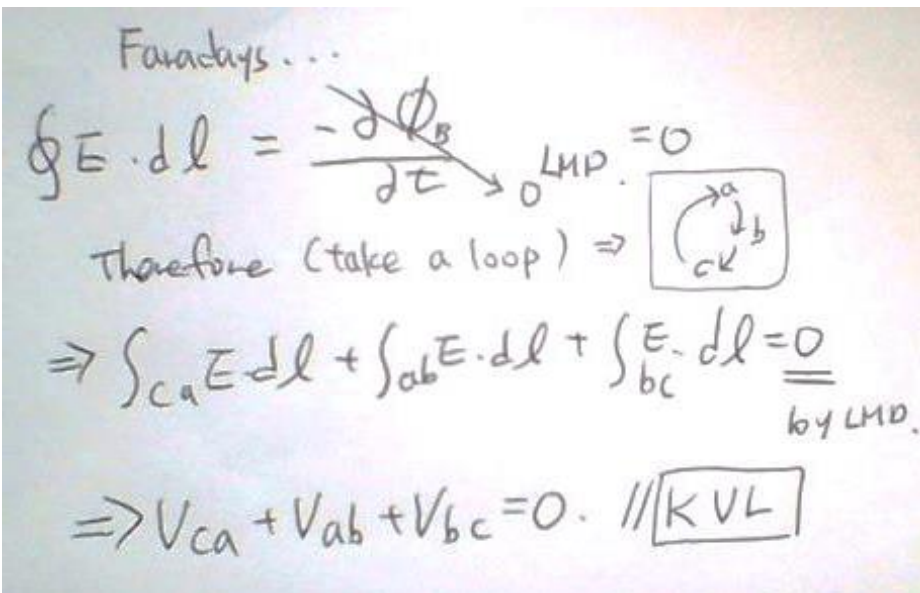 Faradays...
∮E·dl = -∂Φ_B/∂t → 0 LMD. = 0
Therefore (take a loop) ⇒ a b c
⇒ ∫_ca E·dl + ∫_ab E·dl + ∫_bc E·dl = 0
by LMD.
⇒ V_ca + V_ab + V_bc = 0. // KVL